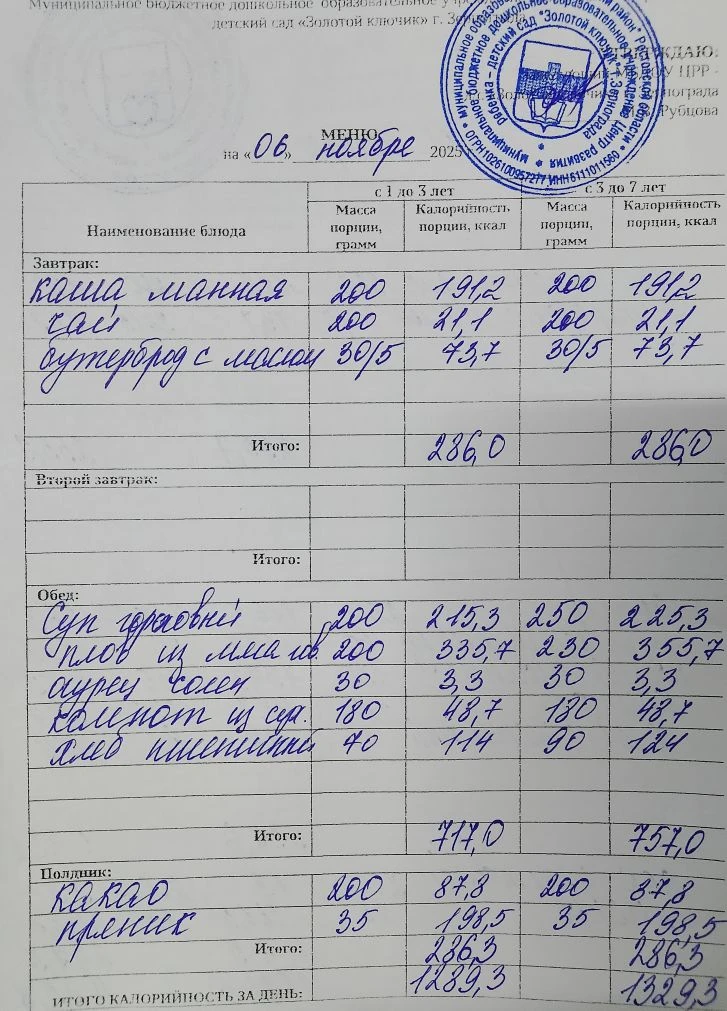 Муниципальное бюджетное дошкольное образовательное
детский сад «Золотой ключик» г.
УТВЕРЖДАЮ:
ЦРР -
Рубцова
ОГРН 1026100957277 ИНН 6111011560
МЕНЮ
на «06» ноября 2025
Наименование блюда с 1 до 3 лет с 3 до 7 лет
Масса порции, грамм Калорийность порции, ккал Масса порции, грамм Калорийность порции, ккал
Завтрак:
каша манная 200 191,2 200 191,2
чай 200 21,1 200 21,1
бутерброд с маслом 30/5 73,7 30/5 73,7
Итого: 286,0 286,0
Второй завтрак:
Итого:
Обед:
Суп гороховый 200 215,3 250 225,3
плов из мяса гов. 200 335,7 230 355,7
огурец солен 30 3,3 30 3,3
компот из сух. 180 48,7 180 48,7
хлеб пшеничный 70 114 90 124
Итого: 717,0 757,0
Полдник:
какао 200 87,8 200 87,8
пряник 35 198,5 35 198,5
Итого: 286,3 286,3
ИТОГО КАЛОРИЙНОСТЬ ЗА ДЕНЬ: 1289,3 1329,3